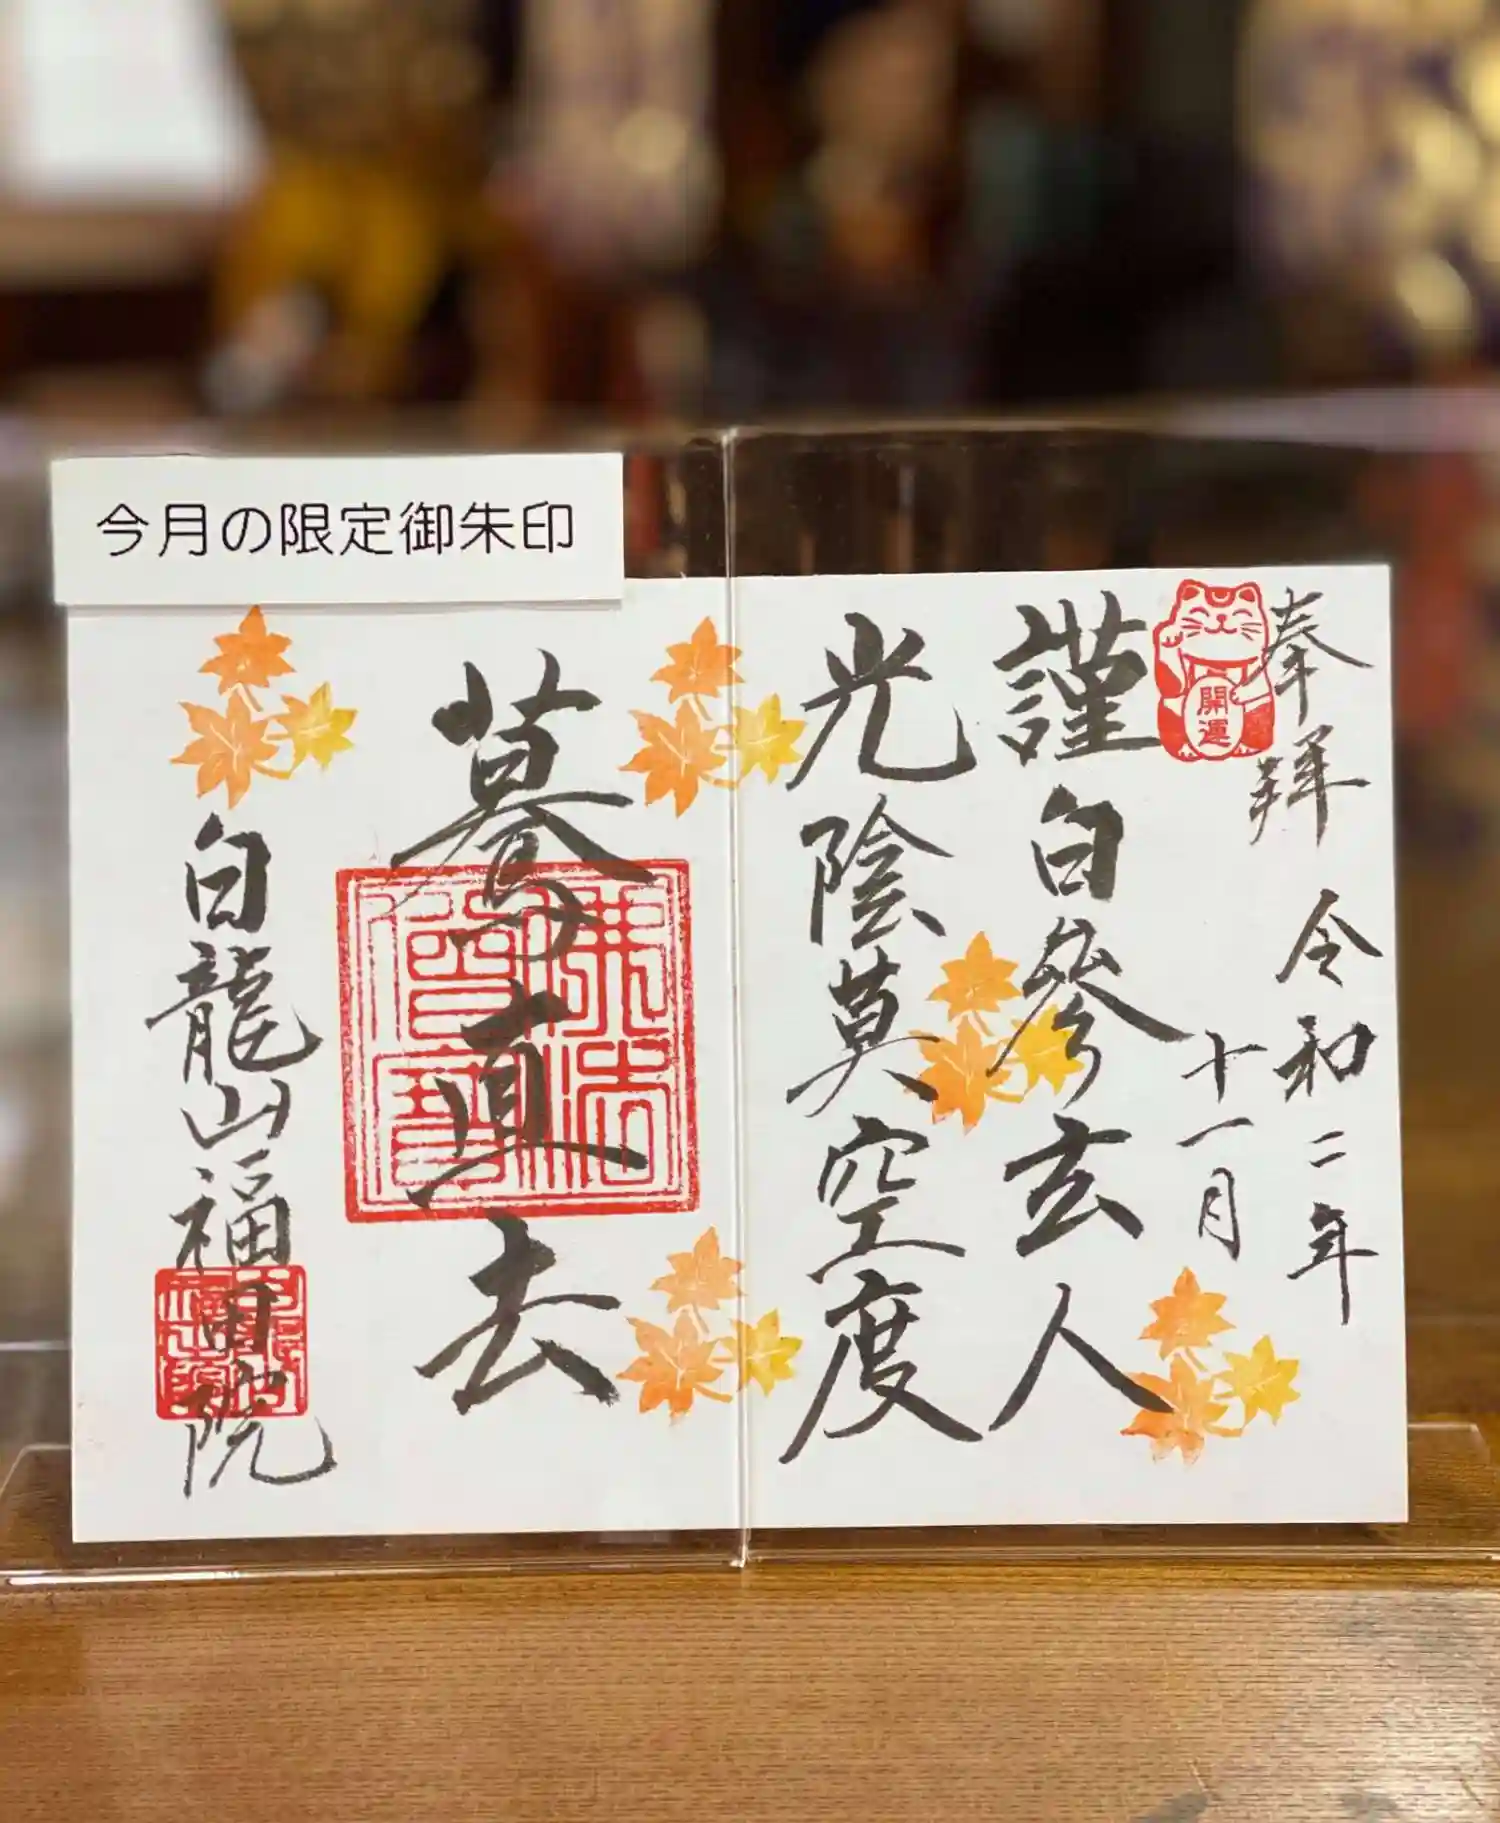 今月の限定御朱印
奉拝
開運
令和二年
十一月
謹白参玄人
光陰莫空度
驀直去
佛法僧寶
白龍山福田院